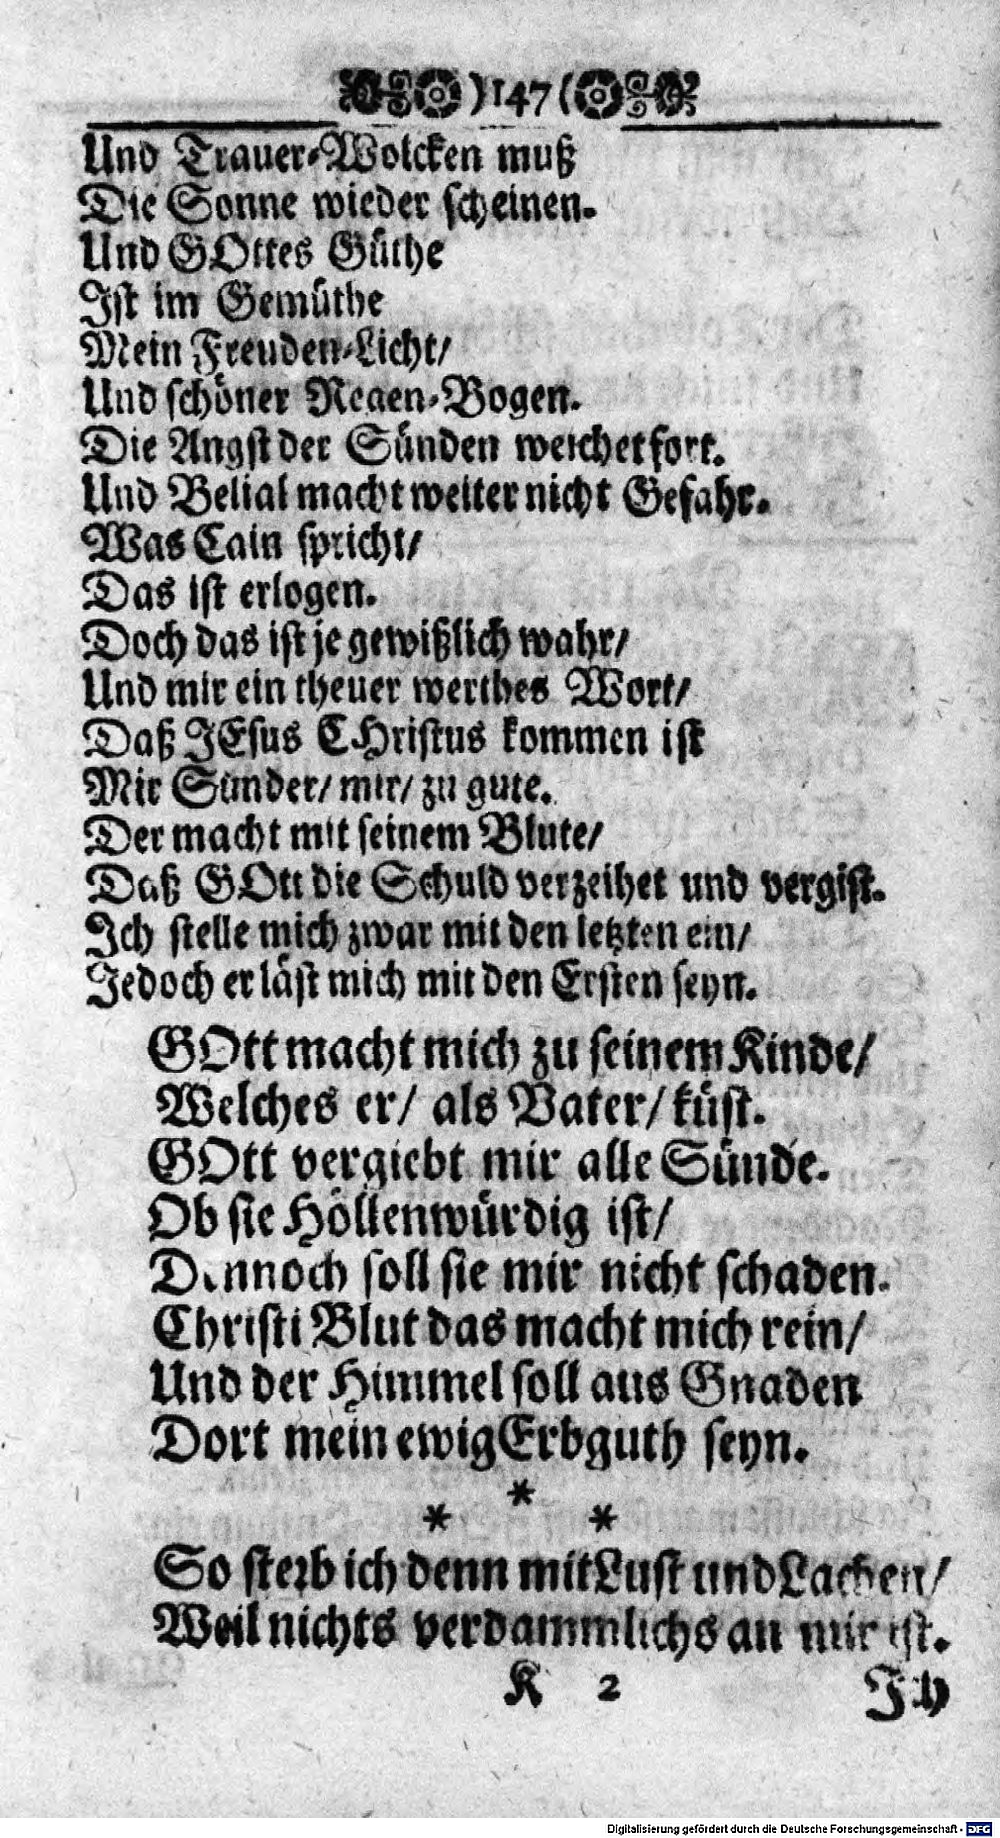 )147(
Und Trauer-Wolcken muß
Die Sonne wieder scheinen.
Und GOttes Güthe
Ist im Gemüthe
Mein Freuden-Licht/
Und schöner Regen-Bogen.
Die Angst der Sünden weichet fort.
Und Belial macht weiter nicht Gefahr.
Was Cain spricht/
Das ist erlogen.
Doch das ist je gewißlich wahr/
Und mir ein theuer werthes Wort/
Daß JEsus CHristus kommen ist
Mir Sünder/ mir/ zu gute.
Der macht mit seinem Blute/
Daß GOtt die Schuld verzeihet und vergist.
Ich stelle mich zwar mit den letzten ein/
Jedoch er läst mich mit den Ersten seyn.
GOtt macht mich zu seinem Kinde/
Welches er/ als Vater/ küst.
GOtt vergiebt mir alle Sünde.
Ob sie Höllenwürdig ist/
Dennoch soll sie mir nicht schaden.
Christi Blut das macht mich rein/
Und der Himmel soll aus Gnaden
Dort mein ewig Erbguth seyn.
* * *
So sterb ich denn mit Lust und Lachen/
Weil nichts verdammlichs an mir ist.
K 2 Ich
Digitalisierung gefördert durch die Deutsche Forschungsgemeinschaft - DFG